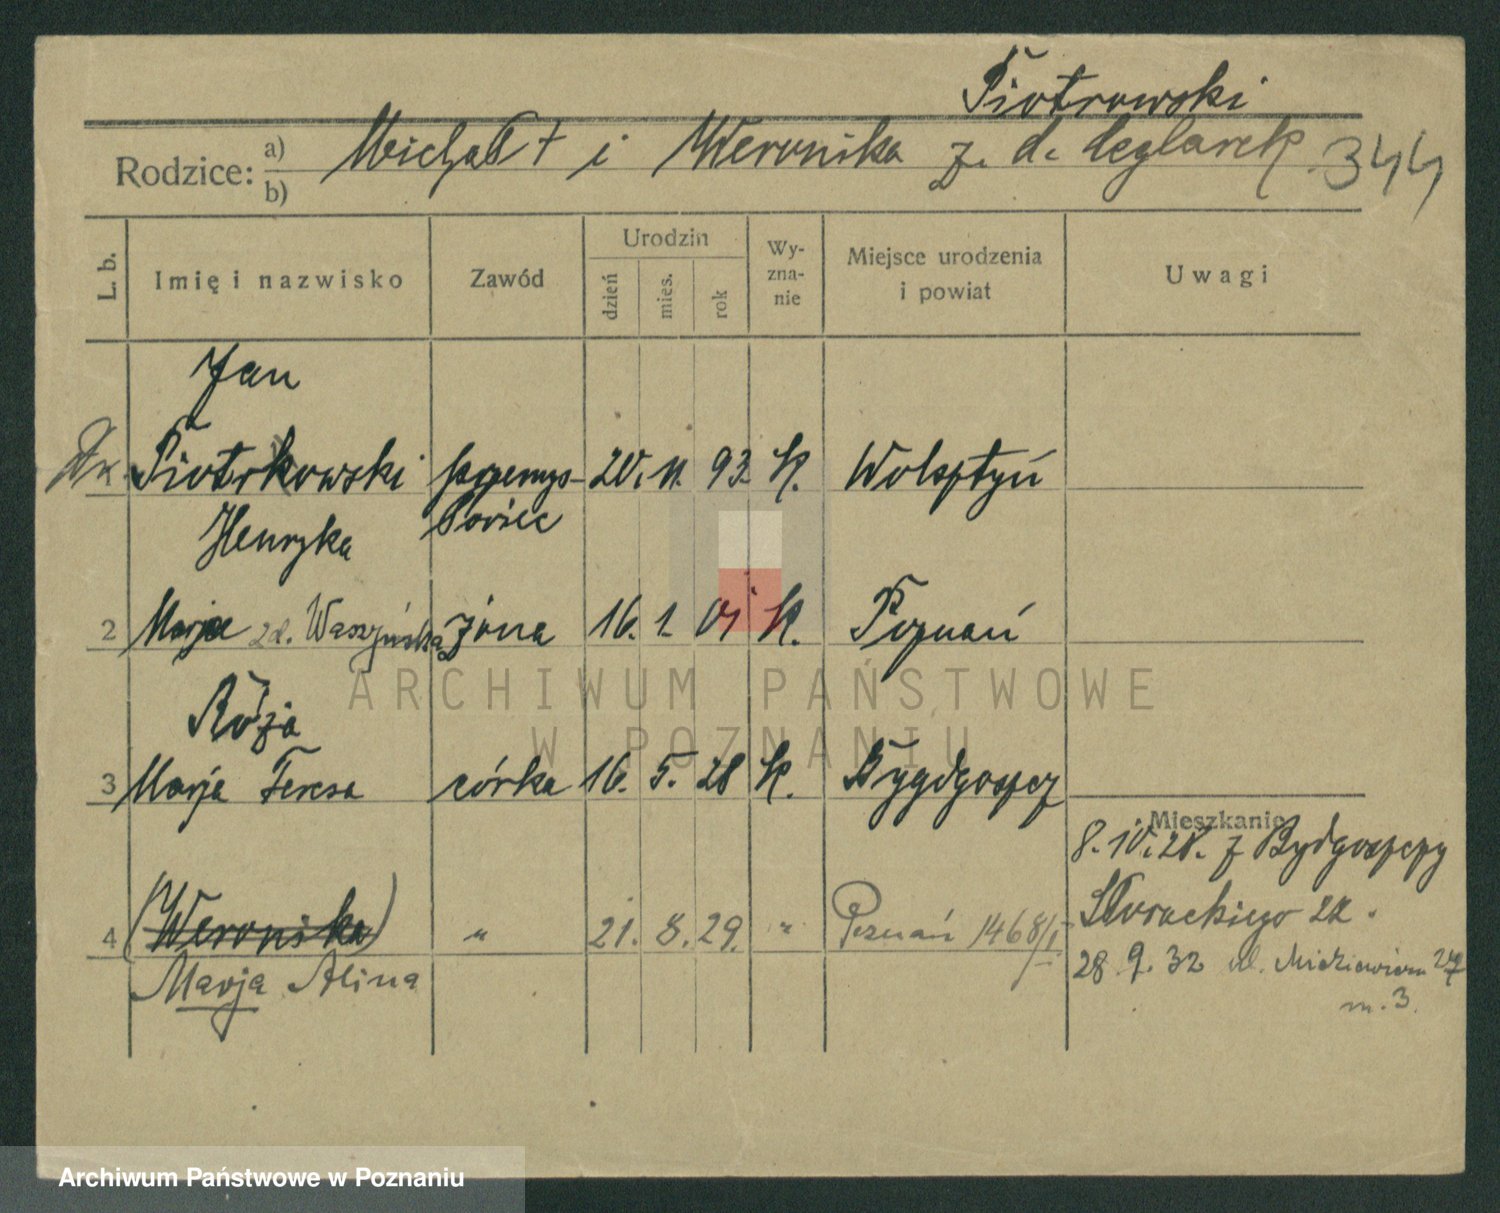 Piotrowski
Rodzice: a) Michał + i Weronika z. d. Ceglarek 344
b)
L. b. Imię i nazwisko Zawód Urodzin dzień mies. rok Wy-zna-nie Miejsce urodzenia i powiat Uwagi
Jan
Piotrkowski przemys- 20. 11. 93. k. Wolsztyń
Henryka łowiec
2 Marja zd. Waszyńska żona 16. 1. 01 k. Poznań
Róża
3 Marja Teresa córka 16. 5. 28 k. Bydgoszcz
Mieszkanie
8. IV. 28. z Bydgoszczy
4 (Weronika) " 21. 8. 29. " Poznań 1468/I
Marja Alina 28. 9. 32 ul. 27
m. 3.
ARCHIWUM PAŃSTWOWE
W POZNANIU
Archiwum Państwowe w Poznaniu